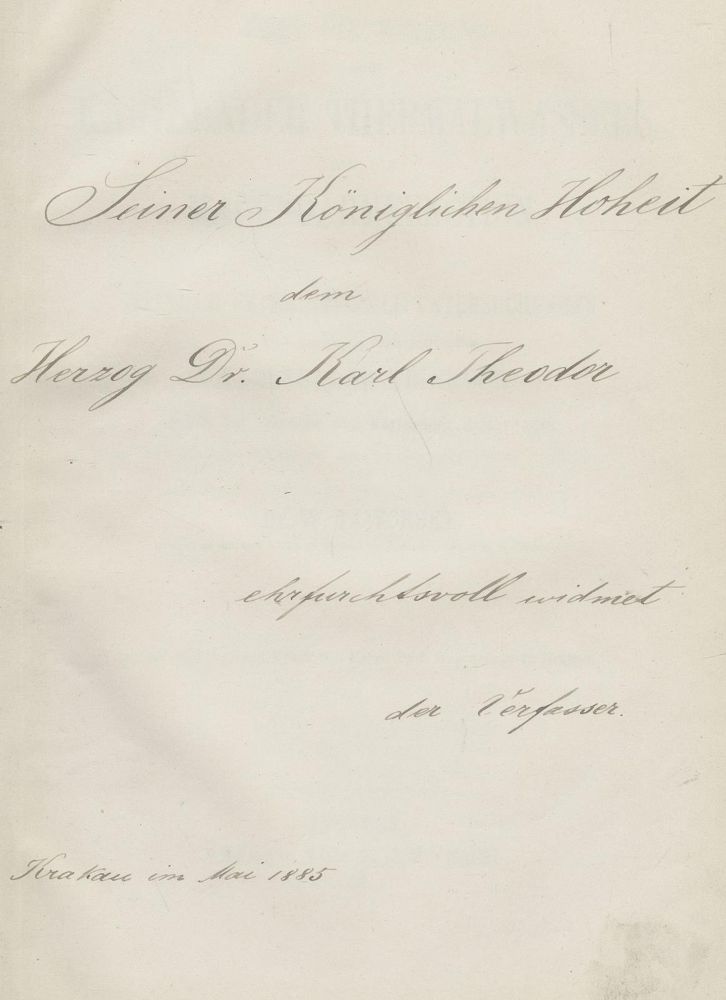 Seiner Königlichen Hoheit
dem
Herzog Dr. Karl Theodor
ehrfurchtsvoll widmet
der Verfasser.
Krakau im Mai 1885